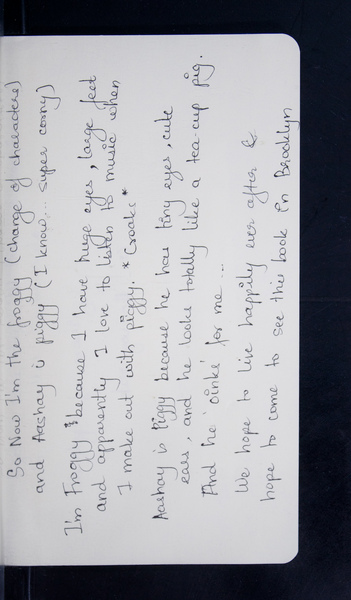 So Now I'm the froggy (change of characters)
and Aashay is piggy (I know... super corny)
I'm Froggy because I have huge eyes, large feet
and apparently I love to listen to music when
I make out with piggy. *Croaks*
Aashay is Piggy because he has tiny eyes, cute
ears, and he looks totally like a tea-cup pig.
And he 'oinks' for me ...
We hope to live happily ever after &
hope to come to see this book in Brooklyn